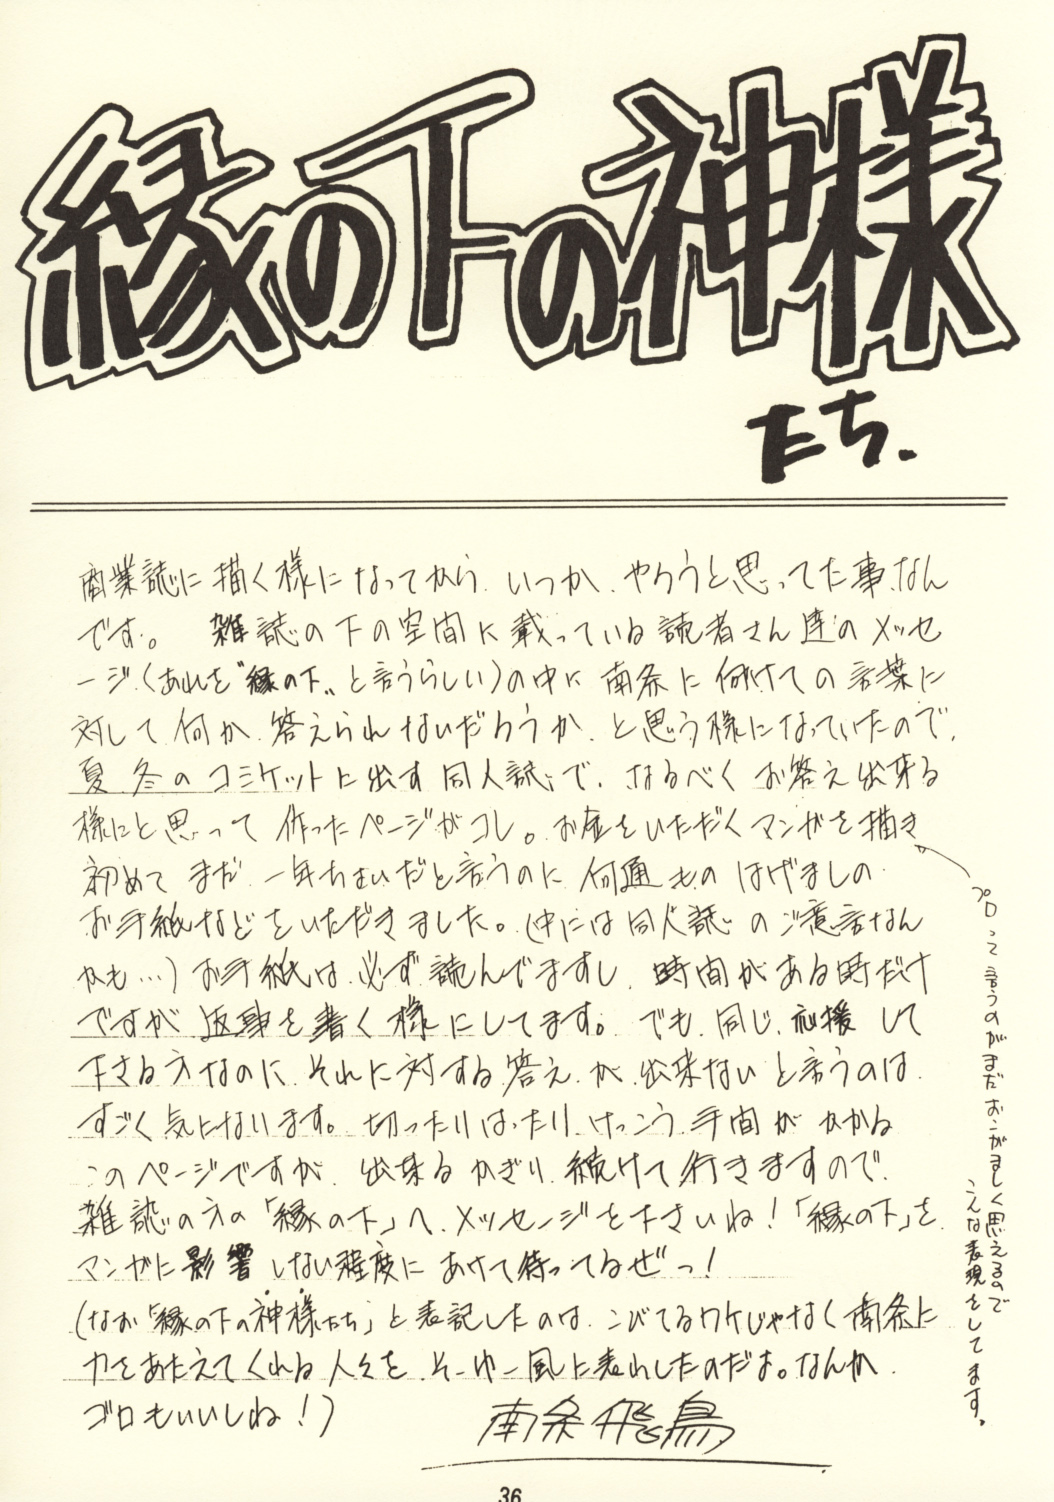 縁の下の神様
たち.
商業誌に描く様になってから、いつか、やろうと思ってた事なん
です。雑誌の下の空間に載っている読者さん達のメッセ
ージ(あれを〝縁の下〟と言うらしい)の中に南条に向けての言葉に
対して何か、答えられないだろうか、と思う様になっていたので、
夏、冬のコミケットに出す同人誌で、なるべくお答え出来る
様にと思って作ったページがコレ。お金をいただくマンガを描き
初めてまだ一年ちょいだと言うのに何通ものはげましの
お手紙などをいただきました。(中には同人誌のご意話なん
かも…)お手紙は必ず読んでますし、時間がある時だけ
ですが返事を書く様にしてます。でも、同じ、応援して
下さる方なのに、それに対する答えが出来ないと言うのは
すごく気になります。切ったりはったり、けっこう手間がかかる
このページですが、出来るかぎり、続けて行きますので、
雑誌の方の「縁の下」へ、メッセージを下さいね!「縁の下」を、
マンガに影響しない程度にあけて待ってるぜっ!
(なお「縁の下の神様たち」と表記したのは、こびてるワケじゃなく南条に
力をあたえてくれる人々を、そーゆー風に表わしたのだよ。なんか
ゴロもいいしね!)
南条飛鳥
プロって言うのがまだおこがましく思えるので
こんな表現をしてます。
36